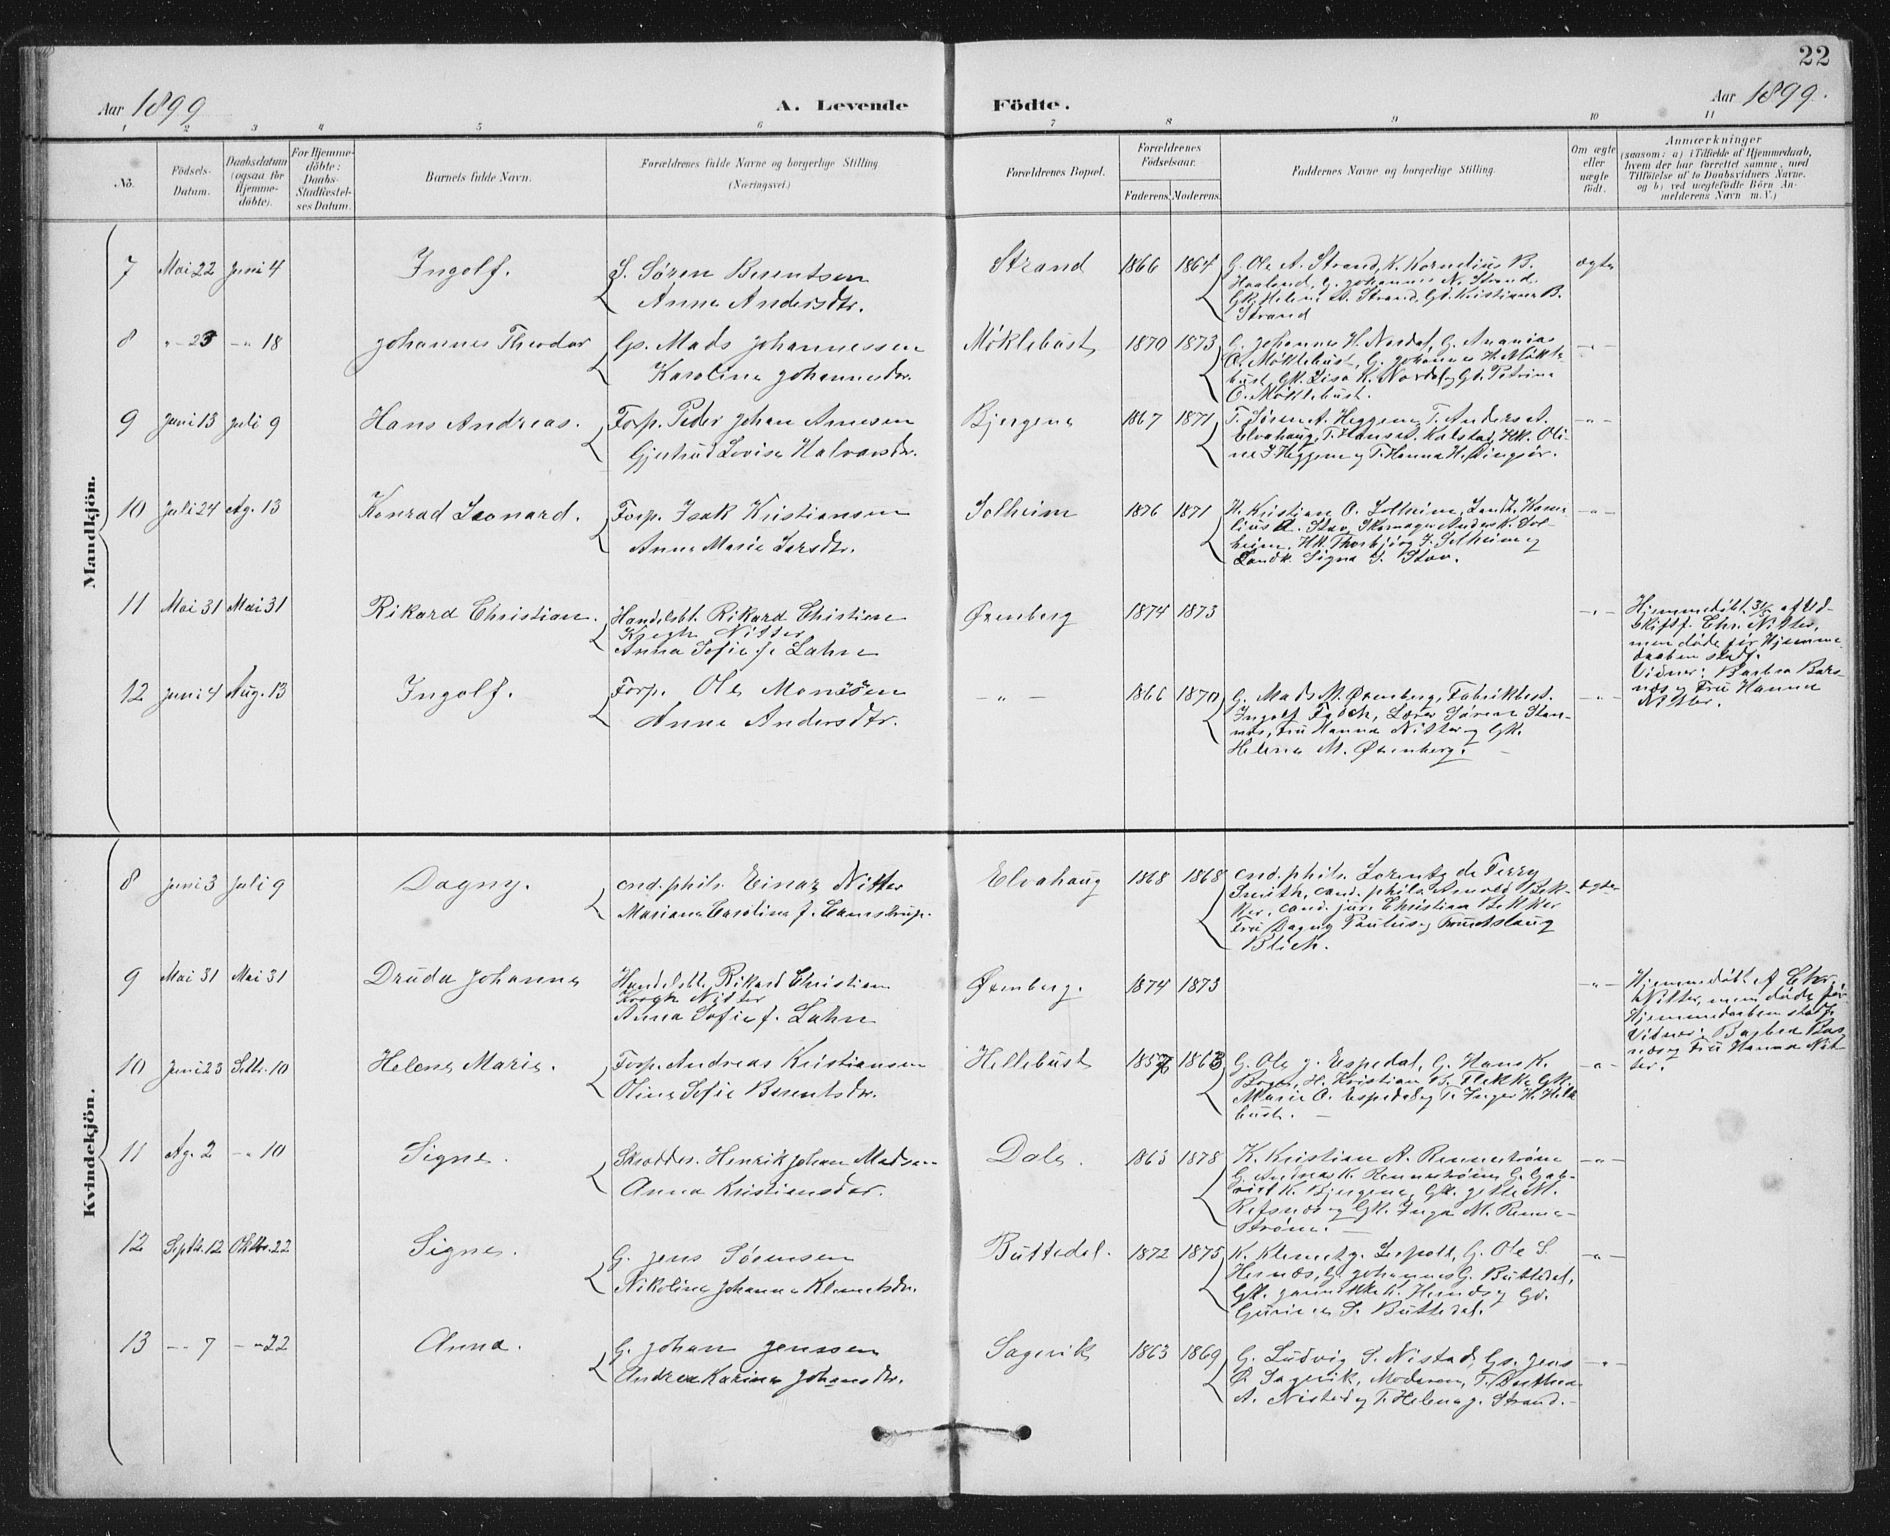 22
Aar 1899
A. Levende Födte.
Aar 1899.
1 2 3 4 5 6 7 8 9 10 11
No.
Födsels-Datum.
Daabsdatum (ogsaa for Hjemme-döbte).
For Hjemme-döbte: Daabs-Stadfæstelses Datum.
Barnets fulde Navn.
Forældrenes fulde Navne og borgerlige Stilling (Næringsvei.)
Forældrenes Bopæl.
Forældrenes Födselsaar.
Faderens. Moderens.
Faddernes Navne og borgerlige Stilling.
Om ægte eller uægte födt.
Anmærkninger
(saasom: a) i Tilfælde af Hjemmedaab,
hvem der har forrettet samme, med
Tilföielse af to Daabsvidners Navne.
og b) ved uægtefödte Börn An-
melderens Navn m. V.)
Mandkjön.
7 Mai 22 Juni 4 Ingolf. S. Søren Berentsen
Anne Andersdtr.
Strand 1866 1864 G. Ole A. Strand, K. Kornelius B.
Haaland, G. Johannes N. Strand,
Gk. Helene A. Strand, Gd. Kristiane B.
Strand
ægte
8 " 23 -"- 18 Johannes Theodor Gs. Mads Johannessen
Karoline Johannesdr.
Møklebust 1870 1873 G. Johannes H. Nordal, G. Ananias
O. Møklebust, G. Johannes H. Møkle-
bust, Gk. Lisa K. Nordal og Gd. Petrine
O. Møklebust.
-"-
9 Juni 13 Juli 9 Hans Andreas. Forp. Peder Johan Arnesen
Gjertrud Lovise Halvorsdr.
Bjergene 1867 1871 T. Søren A. Heggene, T. Anders A.
Elvahaug, T. Hans A. Kalstad, Hk. Oli-
ne J. Heggene og T. Hanna H. Ringsør.
-"-
10 Juli 24 Ag. 13 Konrad Leonard. Forp. Isak Kristiansen
Anne Marie Larsdtr.
Solheim 1876 1871 K. Kristian O. Solheim, Landh. Korne-
lius A. Stav, Skomager Anders K. Sol-
heim, Hk. Thorbjørg J. Solheim og
Landk. Signe J. Stav.
-"-
11 Mai 31 Mai 31 Rikard Christian. Handelsbt. Rikard Christian
Krogh Nitter
Anna Sofie f. Lahn
Øxenberg 1874 1873
-"-
Hjemmedøbt 31/5 af Ud-
skiftf. Chr. Nitter,
men døde før Hjemme-
daaben stadf.
Vidner: Barbra Bars-
næs og Fru Hanna
Nitter.
12 Juni 4 Aug. 13 Ingolf. Forp. Ole Monssen
Anne Andersdtr.
-"- 1866 1870 G. Mads M. Øxenberg, Fabrikbest.
Ingolf Fasch, Lærer Søren Stan-
næs, Fru Hanna Nitter og Gk.
Helene M. Øxenberg.
-"-
Kvindekjön.
8 Juni 3 Juli 9 Dagny. cnd. phil. Einar Nitter
Mariane Caroline f. Camstrup.
Elvahaug 1868 1868 cnd. phil. Lorentz de Ferry
Smith, cand. phil. Arnold Bek-
ker, cand. jur. Christian Bekker
Fru Dagny Paulus og Fru Aslaug
Blich.
ægte
9 Mai 31 Mai 31 Druda Johanne Handelsbt. Rikard Christian
Krogh Nitter
Anna Sofie f. Lahn
Øxenberg. 1874 1873
-"-
Hjemmedøbt af Chr.
Nitter, men døde før
Hjemmedaaben stadf.
Vidner: Barbra Bars-
næs og Fru Hanna Nit-
ter.
10 Juni 23 Septb. 10 Helene Marie. Forp. Andreas Kristiansen
Oline Sofie Berentsdr.
Hellebust 1857 1863 G. Ole J. Espedal, G. Hans K.
Boge, H. Kristian T. Flekke Gk.
Marie O. Espedal og T. Inger H. Helle-
bust.
-"-
11 Ag. 2 -"- 10 Signe. Skrædder Henrik Johan Madsen
Anna Kristiansdr.
Dale. 1863 1878 K. Kristian A. Rennestrøm
G. Andreas K. Rennestrøm, G. Gab-
riel K. Bjergene, Gk. Jette M.
Refsnæs og Gk. Inga M. Renne-
strøm.
-"-
12 Septb. 12 Oktbr. 22 Signe. G. Jens Sørensen
Nikoline Johanne Klemetsdr.
Buttedal. 1872 1875 K. Klemet J. Leepolt, G. Ole S.
Hernæs, G. Johannes G. Buttedal,
Gk. Jannikke K. Hernæs og Gd.
Gurine S. Buttedal.
-"-
13 -"- 7 -"- 22 Anna. G. Johan Jenssen
Andrea Karine Johansdr.
Sagevik 1863 1869 G. Ludvig S. Nistad, Gs. Jens
O. Sagevik, Moderen, T. Berthea
A. Nistad og T. Helene J. Strand.
-"-